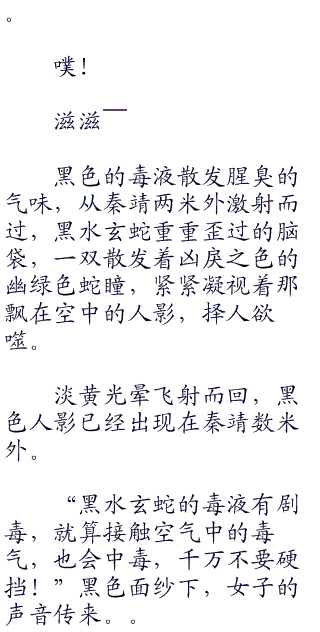 。
噗！
滋滋——
黑色的毒液散发腥臭的
气味，从秦靖两米外激射而
过，黑水玄蛇重重歪过的脑
袋，一双散发着凶戾之色的
幽绿色蛇瞳，紧紧凝视着那
飘在空中的人影，择人欲
噬。
淡黄光晕飞射而回，黑
色人影已经出现在秦靖数米
外。
“黑水玄蛇的毒液有剧
毒，就算接触空气中的毒
气，也会中毒，千万不要硬
挡！”黑色面纱下，女子的
声音传来。。